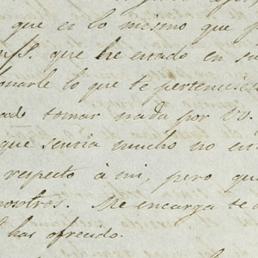 que es lo mismo que p
que he estado en su
onarle lo que te pertenecie
tomar nada por VV.
que sentia mucho no en
respecto à mi, pero qu
nosotros. Me encarga te d
has ofrecido.